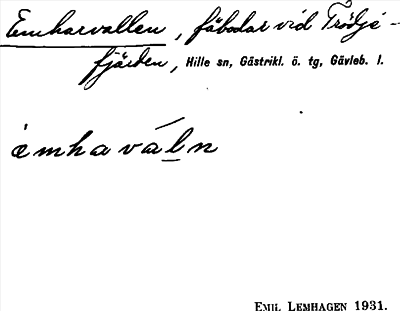 Emharvallen, fäbodar vid Trödje-
fjärden, Hille sn, Gästrikl. ö. tg, Gävleb. l.
èmhaváln
EMIL LEMHAGEN 1931.